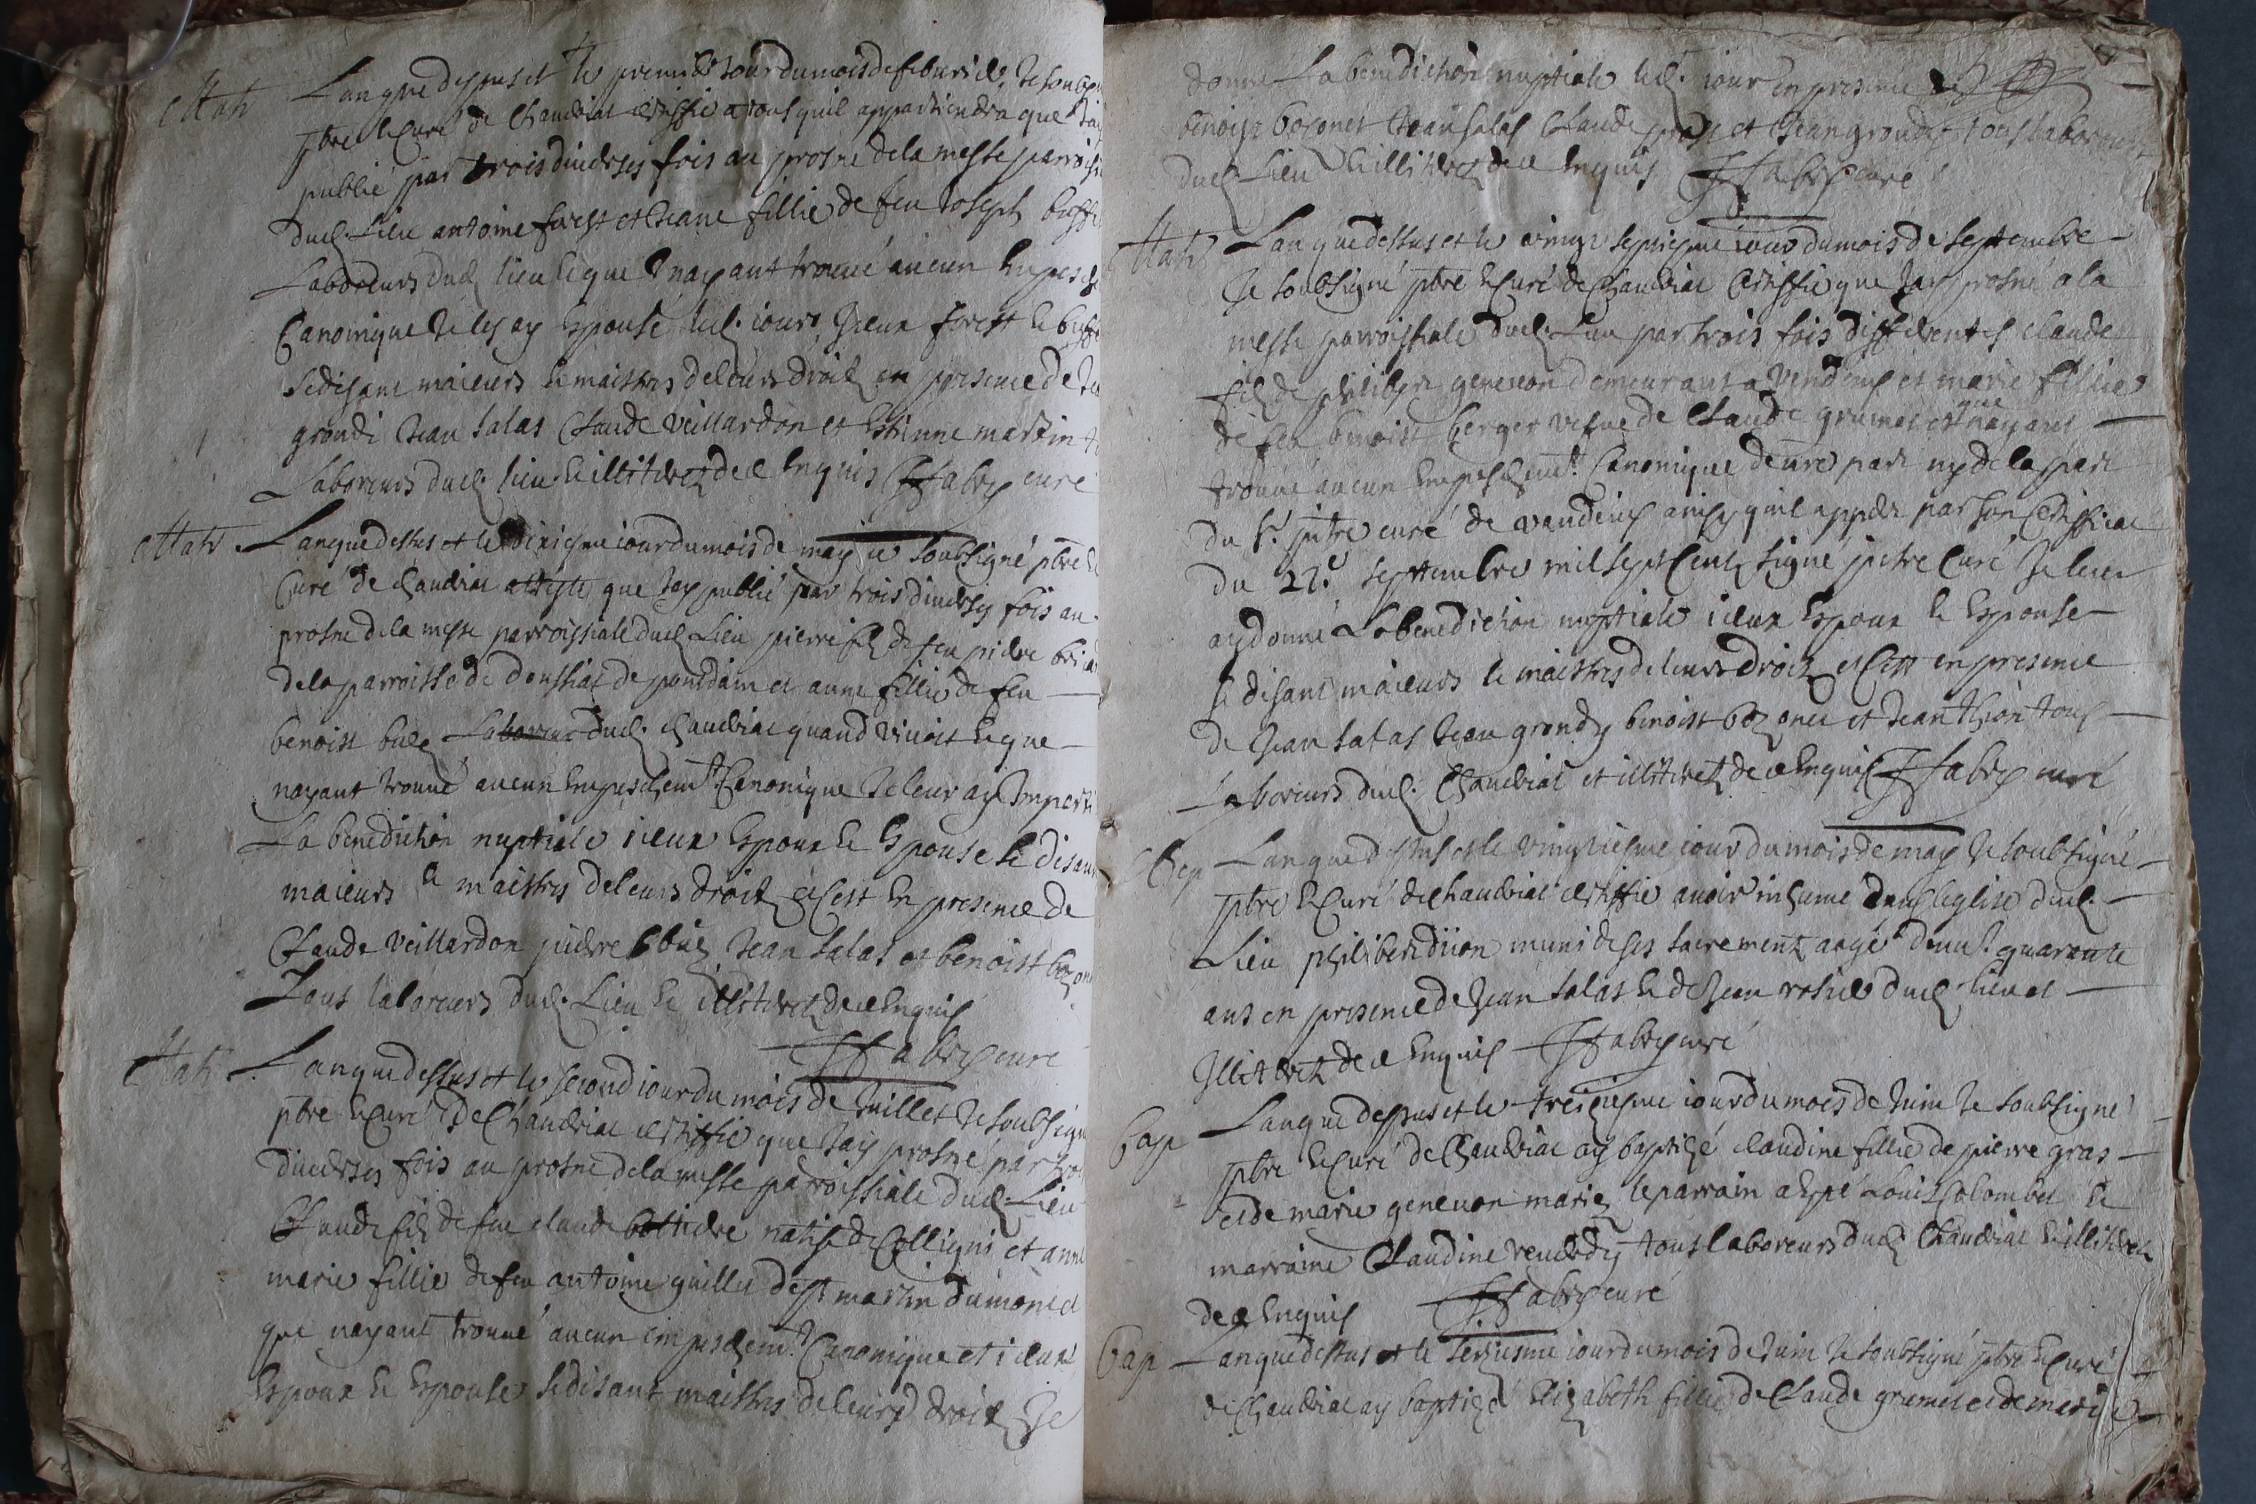 Mar Lan que dessus et le premier iour du mois de febvrier, Je soub
pbre et Curé de Chaudiac certiffie a tous quil appartiendra que Jay
publié par trois diverses fois au prosne de la messe parroissi
dud. Lieu antoine forest et Jeane fillie de feu Joseph buffe
Laboreurs dud. lieu et que nayant trouvé aucun Empesche
Canonique Je les ay Espousé led. iour, Iceux forest et buffe
Se disant maieurs et maistres de leurs droitz en presence de Jea
grondi Jean salas Claude veillardon et Estienne martin
Laboreurs dud. lieu et illiterez de ce Enquis Fabry curé
Mar Lan que dessus et le iour du mois de may je soubsigné pbre et
Curé de Chaudiac atteste que Jay publié par trois diverses fois au
prosne de la messe parroissiale dud. Lieu pierre filz de feu pierre
de la parroisse de doussiat de pontdain et anne fillie de feu
benoist Laboreur dud. Chaudiac quand vivoit et que
nayant trouvé aucun Empeschemt Canonique Je leur ay Imparti
La benediction nuptiale iceux Espoux et Espouse se disant
maieurs et maistres de leurs droitz et Cest En presence de
Claude veillardon pierre Jean salas et benoist bozon
Tous laboreurs dud. Lieu et illiterez de ce Enquis
Fabry curé
Mar Lan que dessus et le second iour du mois de Juillet Je soubsign
pbre et Curé de Chaudiac certiffie que Jay prosné par troi
diverses fois au prosne de la messe parroissiale dud. Lieu
Claude filz de feu claude natif de Colligni et anne
marie fillie de feu antoine guillet de st martin dumont et
que nayant trouvé aucun empeschemt Canonique et iceux
Espoux et Espouse se disant maistres de leurs droitz Je
donné La benediction nuptiale led. iour En presence de
benoist bozonet Jean salas Claude et Jean grondi tous laboreurs
dud. Lieu et illiterez de ce Enquis Fabry curé
Mar Lan que dessus et le vingt septiesme iour du mois de septembre
Je soubsigné pbre et Curé de Chaudiac Certiffie que Jay prosné a la
messe parroissiale dud. Lieu par trois fois differentes claude
filz de philibert genevon demeurant a vendeins et marie fillie
de feu benoist berger vefve de Claude grumet et que nayant
trouvé aucun Empeschemt Canonique de nre part ny de la part
du Sr. pitre curé de vandeins ainsy quil appert par son Certifficat
du 22e septembre mil sept Centz signé pitre Curé Je leur
ay donné La benediction nuptiale iceux Espoux et Espouse
se disant maieurs et maistres de leurs droitz et Cest en presence
de Jean salas Jean grondy benoist bozonet et Jean tous
Laboreurs dud. Chaudiac et illiterez de ce Enquis Fabry curé
Sep Lan que dessus et le vingtiesme iour du mois de may Je soubsigné
pbre et Curé de Chaudiac certiffie avoir inhumé dans leglise dud.
Lieu philibert muni de ses sacrementz aagé denv. quarante
ans en presence de Jean salas et de Jean dud. lieu et
Illiterez de ce Enquis Fabry curé
bap Lan que dessus et le treiziesme iour du mois de Juin Je soubsigné
pbre et Curé de Chaudiac ay baptizé claudine fillie de pierre gras
et de marie genevon mariez le parrain a Esté Louis Colombet et
marraine Claudine tous laboreurs dud. Chaudiac et illiterez
de ce Enquis Fabry curé
bap Lan que dessus et le iour du mois de Juin Je soubsigné pbre et Curé
de Chaudiac ay baptizé Elizabeth fillie de Claude grumet et de marie